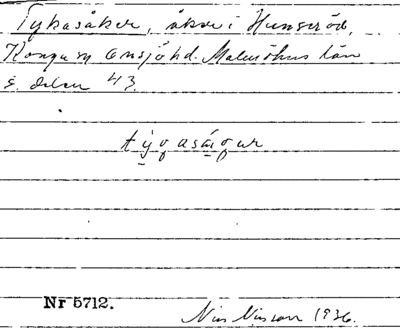 Tykasåker, åker i Hunseröd,
Konga sn Onsjö hd. Malmöhus län
s. delen 43.
týqasáqur
Nr 5712.
Nils Nilsson 1936.